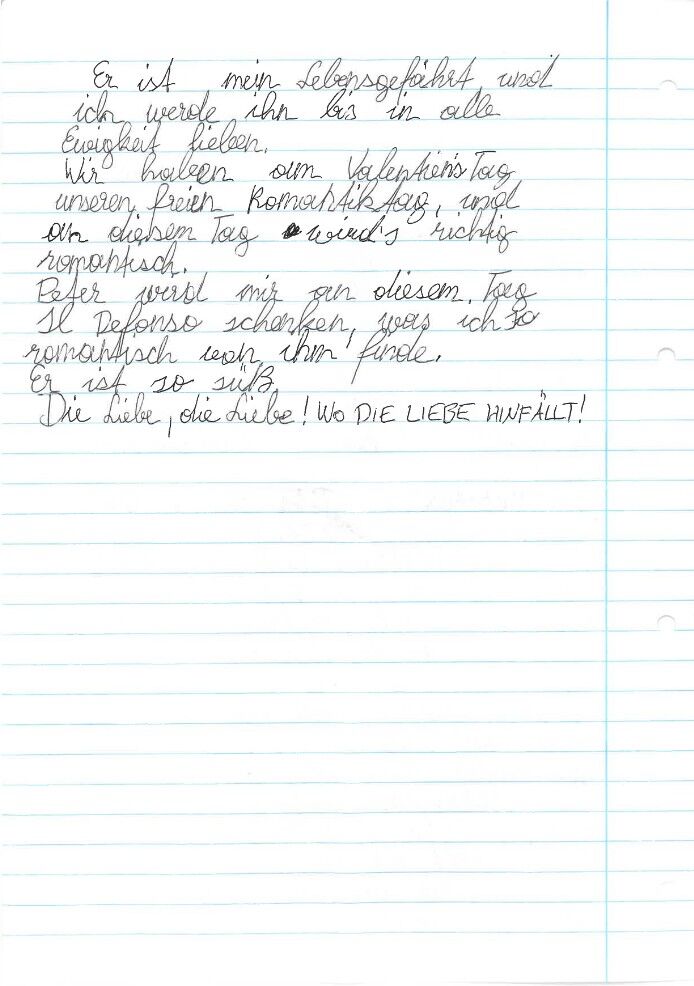 Er ist mein Lebensgefährt und
ich werde ihn bis in alle
Ewigkeit lieben.
Wir haben am Valentien's Tag
unseren freien Romantiktag, und
an diesem Tag wird's richtig
romantisch.
Peter wird mir an diesem Tag
Il Defonso schenken, was ich so
romantisch von ihm finde.
Er ist so süß.
Die Liebe, die Liebe! WO DIE LIEBE HINFÄLLT!